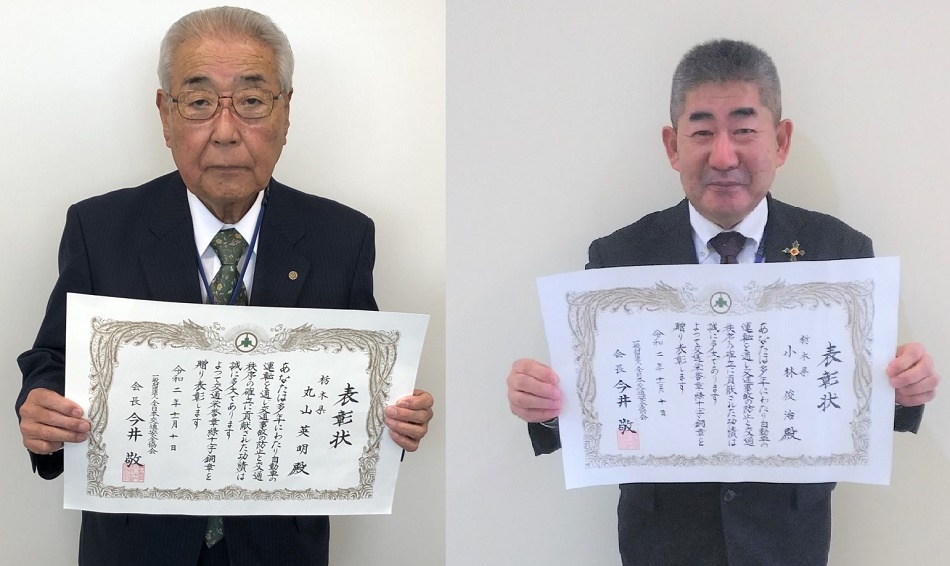 表彰状
栃木県
丸山英明殿
あなたは多年にわたり自動車の
運転を通じ交通事故の防止と交通
秩序の確立に貢献された功績は
誠に多大であります
よって交通栄誉章緑十字銅章を
贈り表彰します
令和二年十二月十日
一般財団法人全日本交通安全協会
会長 今井 敬
表彰状
栃木県
小林俊治殿
あなたは多年にわたり自動車の
運転を通じ交通事故の防止と交通
秩序の確立に貢献された功績は
誠に多大であります
よって交通栄誉章緑十字銅章を
贈り表彰します
令和二年十二月十日
一般財団法人全日本交通安全協会
会長 今井 敬